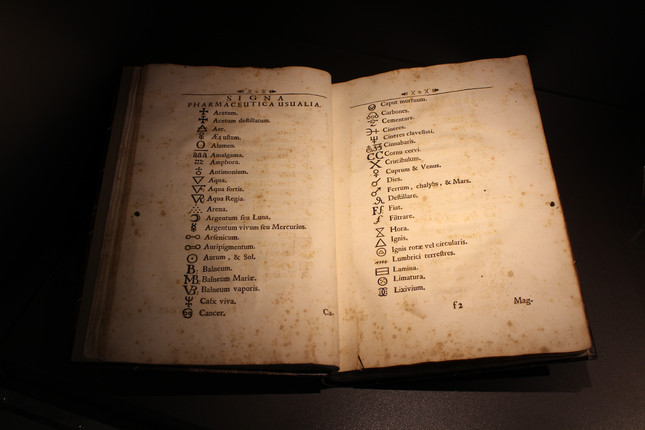 SIGNA
PHARMACEUTICA USUALIA.
Acetum.
Acetum destillatum.
Aer.
Æs ustum.
Alumen.
aaa Amalgama.
Amphora.
Antimonium.
Aqua.
Aqua fortis.
Aqua Regia.
Arena.
Argentum seu Luna.
Argentum vivum seu Mercurius.
Arsenicum.
Auripigmentum.
Aurum, & Sol.
B Balneum.
Balneum Mariæ.
Balneum vaporis.
Calx viva.
Cancer.
Ca-
Caput mortuum.
Carbones.
Cementare.
Cineres.
Cineres clavellati.
Cinnabaris.
CC Cornu cervi.
Crucibulum.
Cuprum & Venus.
Dies.
Ferrum, chalybs, & Mars.
Destillare.
Fiat.
Filtrare.
Hora.
Ignis.
Ignis rotæ vel circularis.
Lumbrici terrestres.
Lamina.
Limatura.
Lixivium.
f 2
Mag-